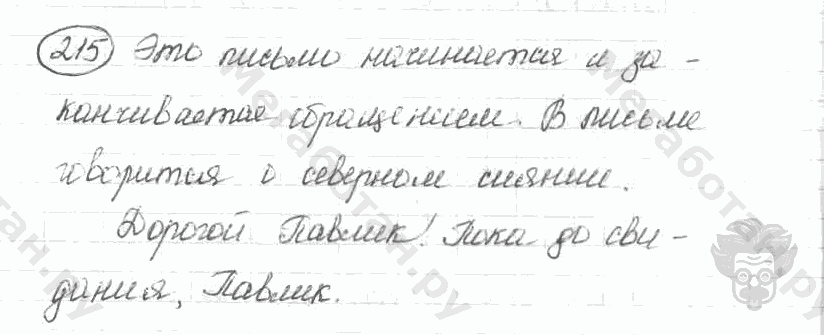 215 Это письмо начинается и за-
канчивается обращением. В письме
говорится о северном сиянии.
Дорогой Павлик! Пока до сви-
дания, Павлик.
Мегаботан.ру